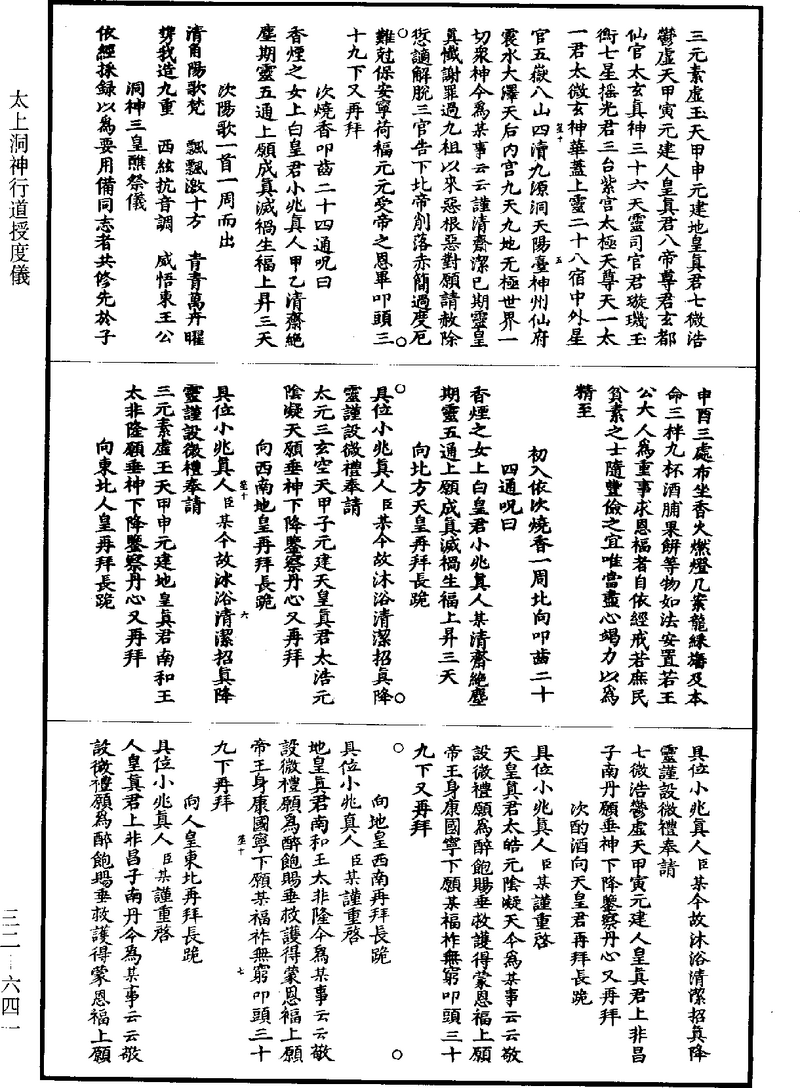 三元素虛玉天甲申元建地皇真君七微浩
鬱虛天甲寅元建人皇真君八帝尊君玄都
仙官太玄真神三十六天靈司官君璇璣玉
衡七星摇光君三台紫宫太極天尊天一太
一君太微玄神華蓋上靈二十八宿中外星
官五嶽八山四瀆九源洞天陽臺神州仙府
至十
五
震水大澤天后内宫九天九地无極世界一
切衆神今為某事云云謹清齋潔已期靈皇
真懺謝罪過九祖以來惡根惡對願請赦除
愆謫解脫三官告下北帝削落赤簡過度厄
難尅保安寧荷福元元受帝之恩畢叩頭三
十九下又再拜
次燒香叩齒二十四通呪曰
香煙之女上白皇君小兆真人甲乙清齋絶
塵期靈五通上願成真滅禍生福上昇三天
次陽歌一首一周而出
清角陽歌梵　飄飄激十方　青青萬卉曜
携我造九重　西絃抗音調　感悟東王公
洞神三皇醮祭儀
依經採録以為要用備同志者共修先於子
申酉三處布坐香火燃燈几案龍綵旛及本
命三柈九杯酒脯果餅等物如法安置若王
公大人為重事求恩福者自依經戒若庶民
貧素之士隨豐儉之宜唯當盡心竭力以為
精至
初入依次燒香一周北向叩齒二十
四通呪曰
香煙之女上白皇君小兆真人某清齋絶塵
期靈五通上願成真滅禍生福上昇三天
向北方天皇再拜長跪
具位小兆真人臣某今故沐浴清潔招真降
靈謹設微禮奉請
太元三玄空天甲子元建天皇真君太浩元
陰凝天願垂神下降鑒察丹心又再拜
向西南地皇再拜長跪
至十
六
具位小兆真人臣某今故沐浴清潔招真降
靈謹設微禮奉請
三元素虛玉天甲申元建地皇真君南和王
太非隆願垂神下降鑒察丹心又再拜
向東北人皇再拜長跪
具位小兆真人臣某今故沐浴清潔招真降
靈謹設微禮奉請
七微浩鬱虛天甲寅元建人皇真君上非昌
子南丹願垂神下降鑒察丹心又再拜
次酌酒向天皇君再拜長跪
具位小兆真人臣某謹重啓
天皇真君太皓元陰凝天今為某事云云敬
設微禮願為醉飽賜垂救護得蒙恩福上願
帝王身康國寧下願某福祚無窮叩頭三十
九下又再拜
向地皇西南再拜長跪
具位小兆真人臣某謹重啓
地皇真君南和王太非隆今為某事云云敬
設微禮願為醉飽賜垂救護得蒙恩福上願
至十
七
帝王身康國寧下願某福祚無窮叩頭三十
九下再拜
向人皇東北再拜長跪
具位小兆真人臣某謹重啓
人皇真君上非昌子南丹今為某事云云敬
設微禮願為醉飽賜垂救護得蒙恩福上願
太上洞神行道授度儀
三二—六四一